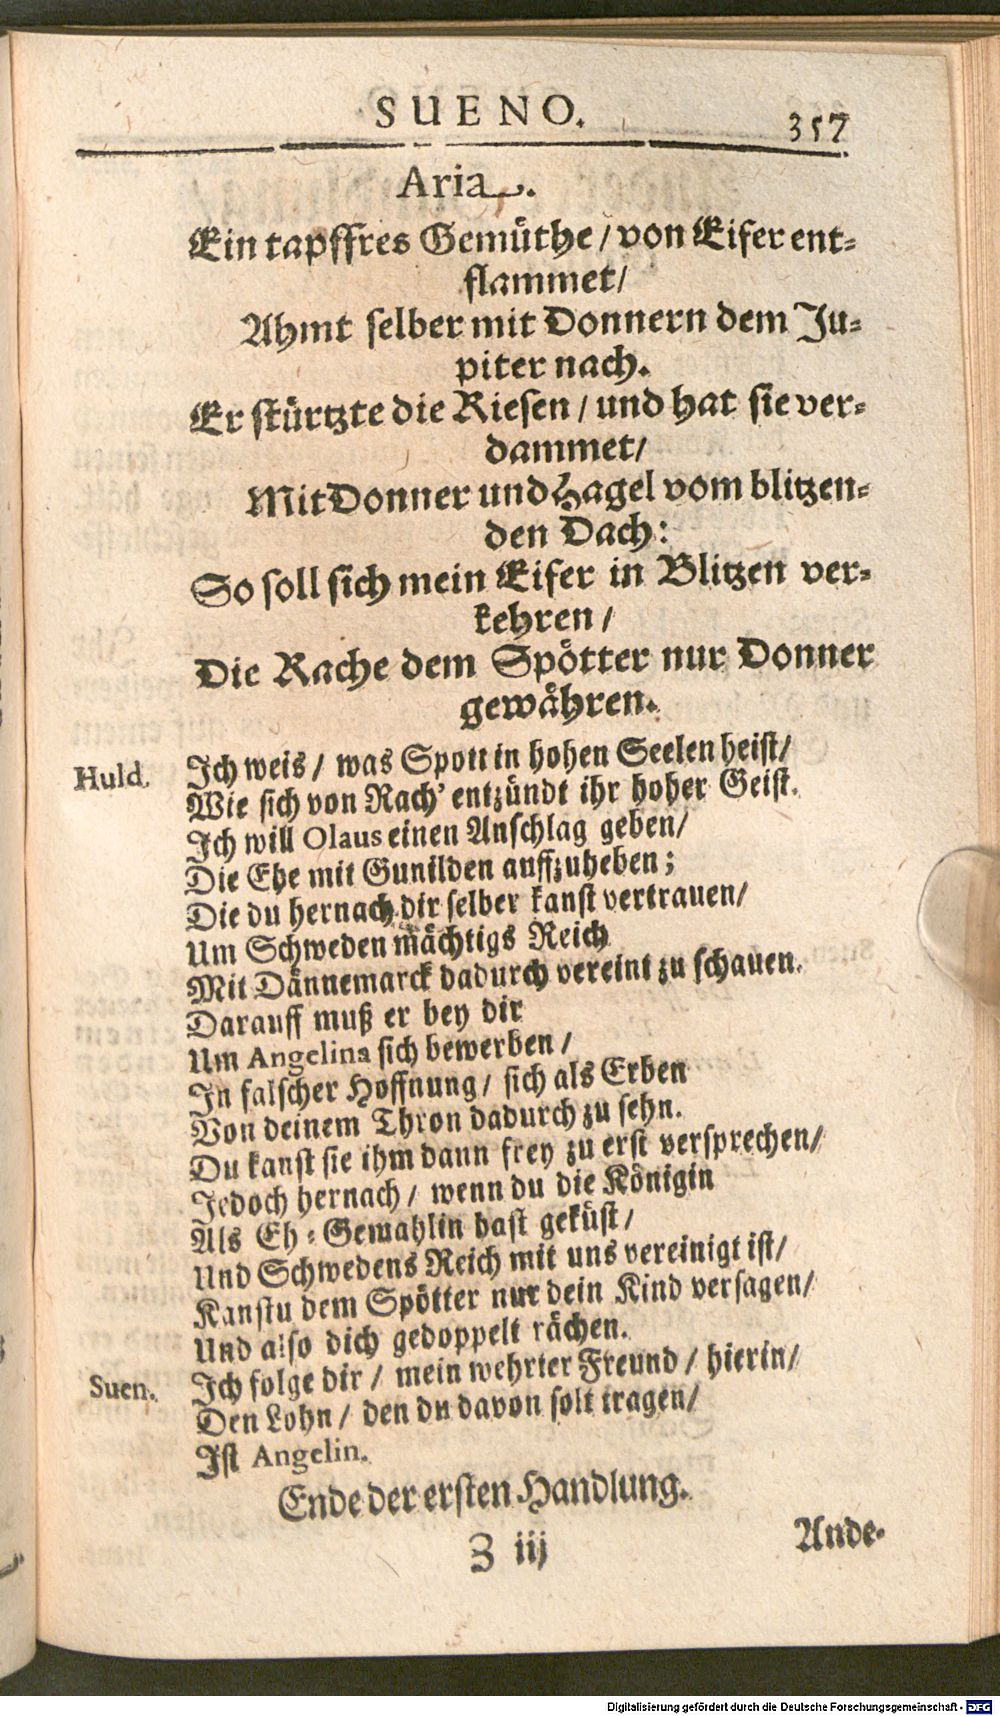 SUENO. 357
Aria.
Ein tapffres Gemüthe / von Eifer ent-
flammet /
Ahmt selber mit Donnern dem Ju-
piter nach.
Er stürtzte die Riesen / und hat sie ver-
dammet /
Mit Donner und Hagel vom blitzen-
den Dach:
So soll sich mein Eifer in Blitzen ver-
kehren /
Die Rache dem Spötter nur Donner
gewähren.
Huld. Ich weis / was Spott in hohen Seelen heist /
Wie sich von Rach' entzündt ihr hoher Geist.
Ich will Olaus einen Anschlag geben /
Die Ehe mit Gunilden auffzuheben ;
Die du hernach dir selber kanst vertrauen /
Um Schweden mächtigs Reich
Mit Dännemarck dadurch vereint zu schauen.
Darauff muß er bey dir
Um Angelina sich bewerben /
In falscher Hoffnung / sich als Erben
Von deinem Thron dadurch zu sehn.
Du kanst sie ihm dann frey zu erst versprechen /
Jedoch hernach / wenn du die Königin
Als Eh-Gemahlin hast geküst /
Und Schwedens Reich mit uns vereinigt ist /
Kanstu dem Spötter nur dein Kind versagen /
Und also dich gedoppelt rächen.
Suen. Ich folge dir / mein wehrter Freund / hierin /
Den Lohn / den du davon solt tragen /
Ist Angelin.
Ende der ersten Handlung.
Z iij Ande-
Digitalisierung gefördert durch die Deutsche Forschungsgemeinschaft - DFG